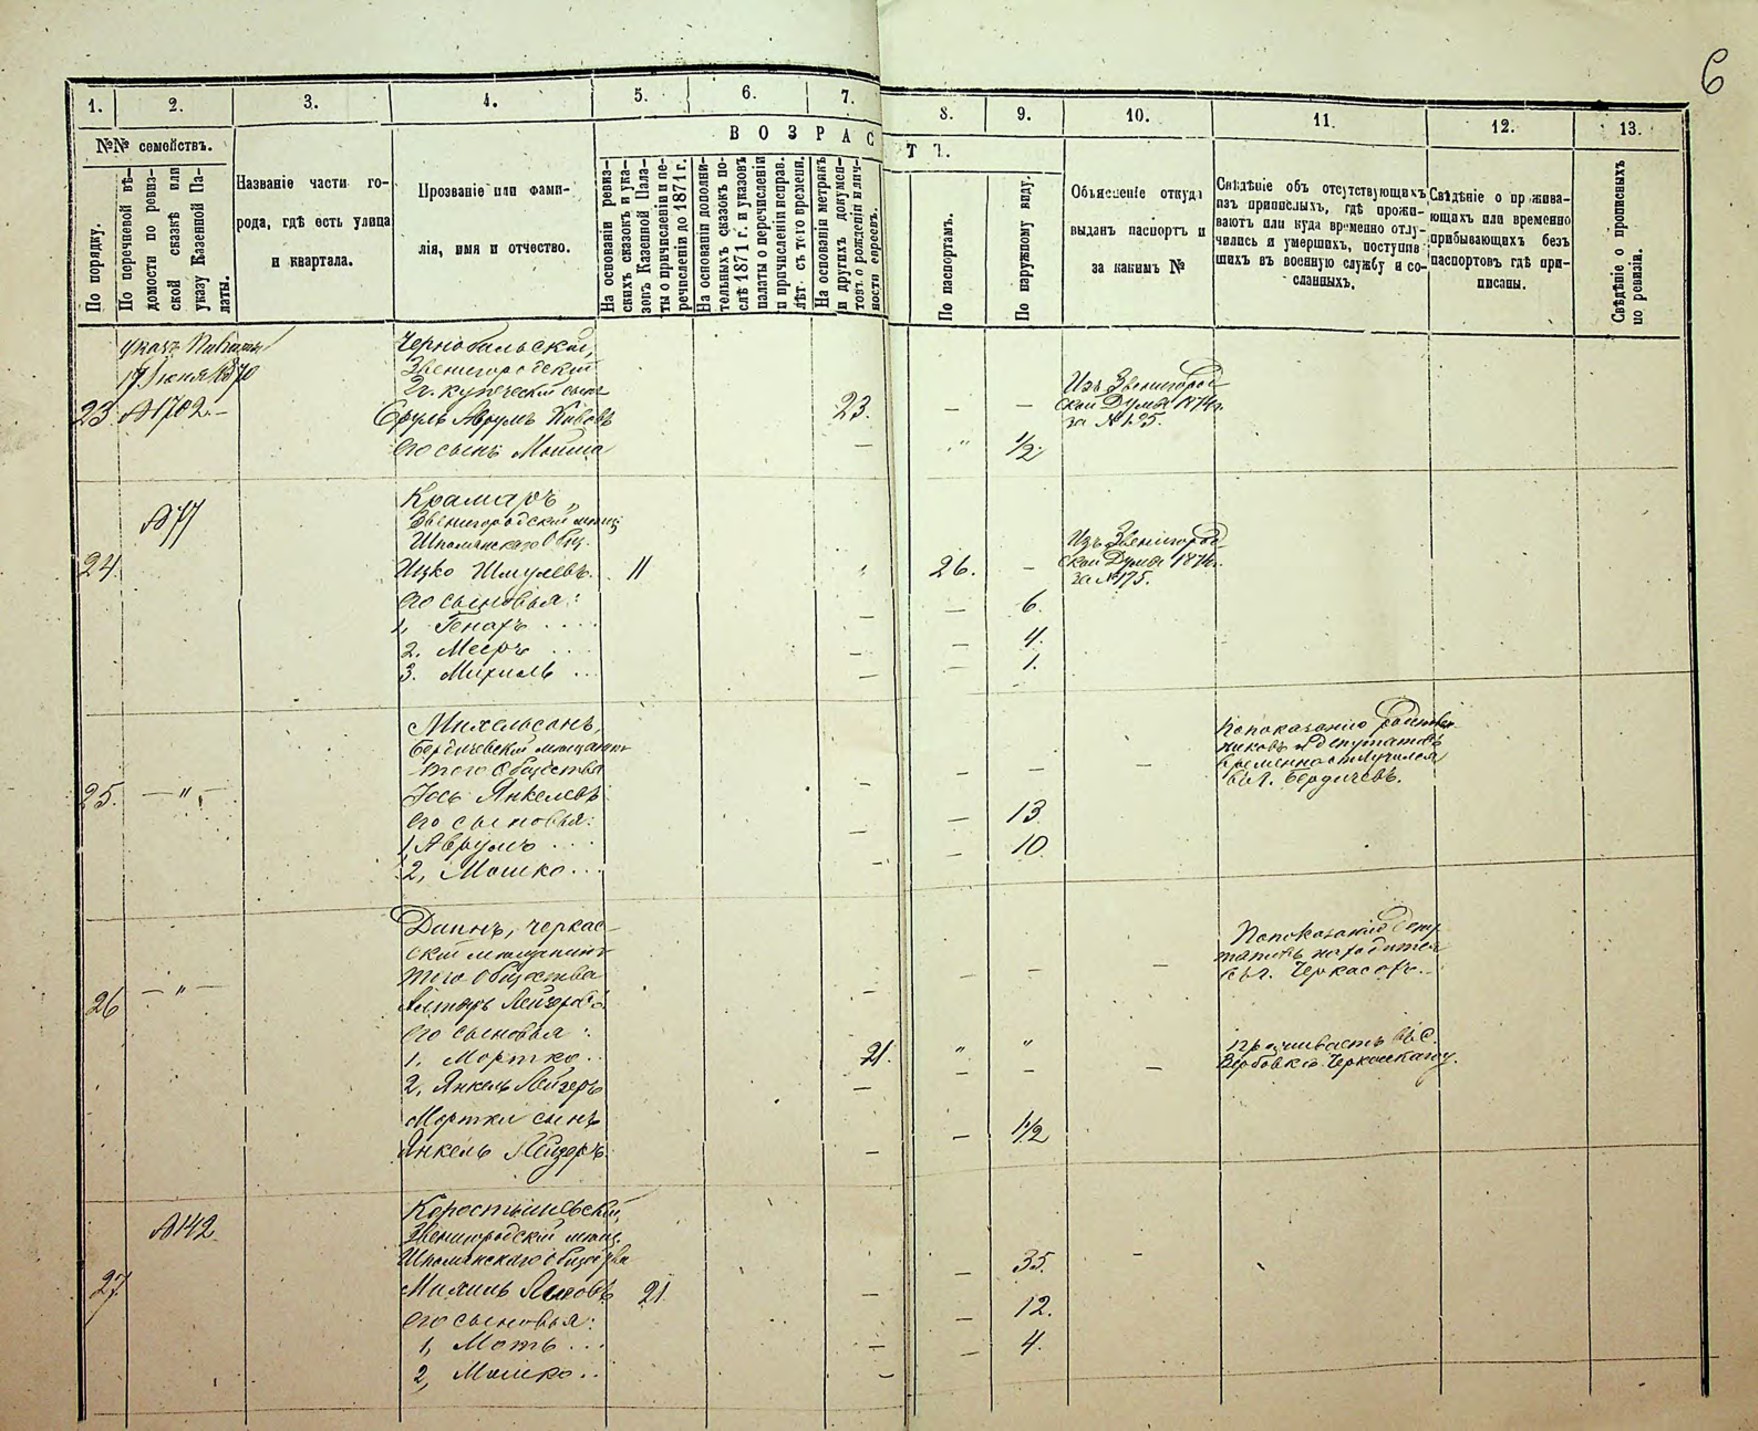 6
1. 2. 3. 4. 5. 6. 7. 8. 9. 10. 11. 12. 13.
№№ семействъ.
В О З Р А С Т Ъ.
По порядку.
По перечневой вѣ-
домости по ревиз-
ской сказкѣ или
указу Казенной Па-
латы.
Названіе части го-
рода, гдѣ есть улица
и квартала.
Прозваніе или фами-
лія, имя и отчество.
На основаніи ревиз-
скихъ сказокъ и ука-
зовъ Казенной Пала-
ты о причисленіи и пе-
речисленіи до 1871 г.
На основаніи дополни-
тельныхъ сказокъ по-
слѣ 1871 г. и указовъ
палаты о перечисленіи
и причисленіи исправ.
лѣт. съ того времени.
На основаніи метрикъ
и другихъ докумен-
товъ о рожденіи и лич-
ности евреевъ.
По паспортамъ.
По наружному виду.
Объясненіе откуда
выданъ паспортъ и
за какимъ №
Свѣдѣніе объ отсутствующихъ
изъ приписныхъ, гдѣ прожи-
ваютъ или куда временно отлу-
чились и умершихъ, поступив
шихъ въ военную службу и со-
сланныхъ.
Свѣдѣніе о прожива-
ющихъ или временно
прибывающихъ безъ
паспортовъ гдѣ при-
писаны.
Свѣдѣніе о прописныхъ
по ревизіи.
указъ
17 Іюня 1870
23 №1702.–
Чернобыльскій,
Звенигородскій
2 г. купеческій сынъ
Сруль Аврумъ 23. — —
Изъ Звенигород-
ской Думы 1874 г.
за № 125.
Его сынъ Мошка — " 1/2
№ 77
Крамаръ,
Звенигородскій мѣщ.
Шполянскаго Общ.
24. Ицко Шмулевъ. 11 " 26. —
Изъ Звенигород-
ской Думы 1874 г.
за № 175.
Его сыновья:
1, Генахъ .... — — 6.
2. Мееръ ... — — 4.
3. Михель .. — — 1.
Михельсонъ,
Бердичевскій мѣщанинъ
того Общества
25. — " — Іось Янкелевъ — — — —
По показанію родствен-
никовъ и депутатовъ
временно отлучился
въ г. Бердичевъ.
Его сыновья:
1, Аврумъ .... — — 13
2, Мошко... — — 10.
черкас-
скій мѣщанинъ
того Общества
26 — " — Лейзеровъ — — — —
По показанію депу-
татовъ находится
въ г. Черкасахъ.—
Его сыновья:
1, Мортко.. 21. " "
проживаетъ въ с.
Вербовкѣ Черкасскаго у.
2, Янкель Лейзеръ — — — —
Мортки сынъ
Янкель Лейзеръ. — — 1 1/2
№ 142
Коростышевскій,
Звенигородскій мѣщ.
Шполянскаго общества
27. Михель 21 — — 35. —
Его сыновья:
1, Моть ... — — 12.
2, Мошко.. — — 4.